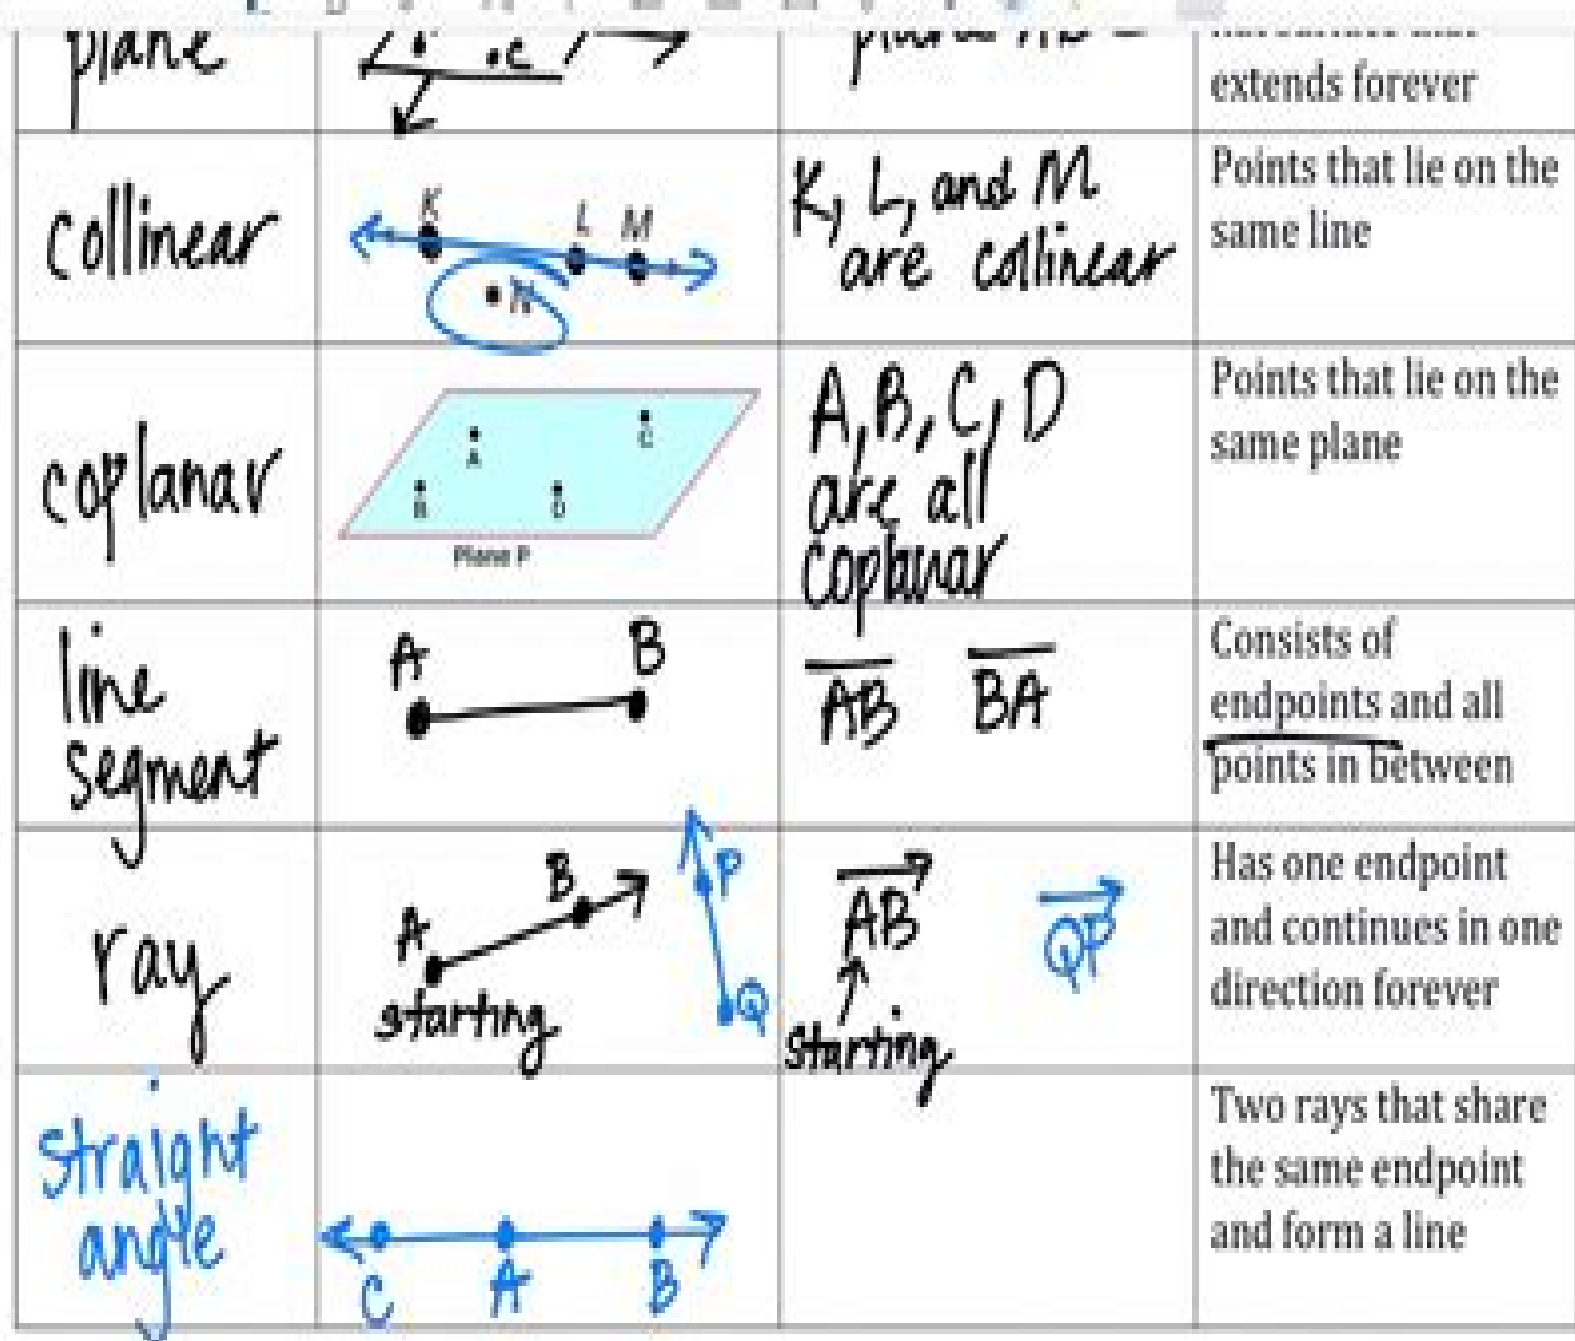 plane
C
extends forever
collinear
K
L M
N
K, L, and M
are collinear
Points that lie on the
same line
coplanar
A
C
B
D
Plane P
A, B, C, D
are all
coplanar
Points that lie on the
same plane
line
segment
A
B
AB BA
Consists of
endpoints and all
points in between
ray
A
B
starting
P
Q
AB
QP
starting
Has one endpoint
and continues in one
direction forever
straight
angle
C A B
Two rays that share
the same endpoint
and form a line